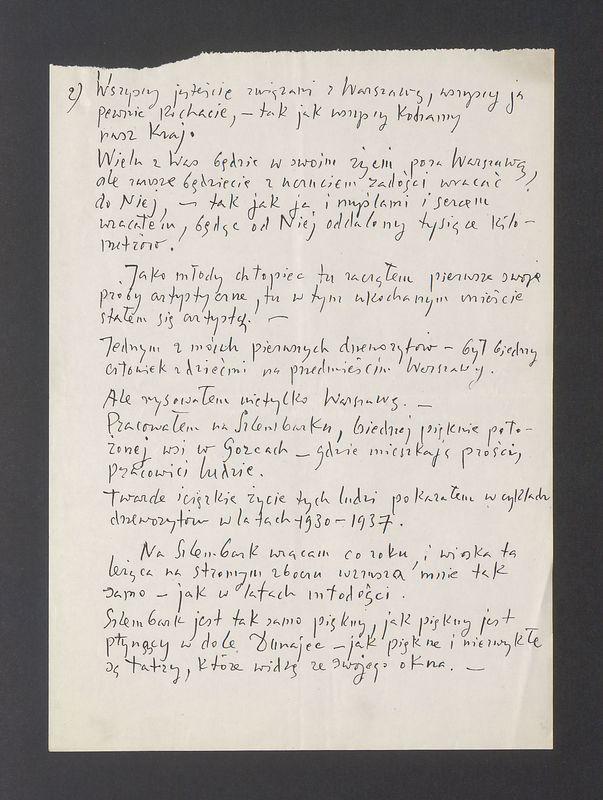 2) Wszyscy jesteście związani z Warszawą, wszyscy ją
pewnie kochacie, – tak jak wszyscy kochamy
nasz Kraj.
Wielu z Was będzie w swoim życiu poza Warszawą,
ale zawsze będziecie z uczuciem radości wracać
do Niej, – tak jak ja i myślami i sercem
wracałem, będąc od Niej oddalony tysiące kilo–
metrów.
Jako młody chłopiec tu zacząłem pierwsze swoje
próby artystyczne, tu w tym ukochanym mieście
stałem się artystą. –
Jednym z moich pierwszych drzeworytów – był biedny
człowiek z dziećmi na przedmieściu Warszawy.
Ale rysowałem nietylko Warszawę. –
Pracowałem na Szlembarku, biednej pięknie poło–
żonej wsi w Gorcach – gdzie mieszkają prości,
pracowici ludzie.
Twarde i ciężkie życie tych ludzi pokazałem w cyklach
drzeworytów w latach 1930–1937.
Na Szlembark wracam co roku, i wioska ta
leżąca na stromym zboczu wzrusza mnie tak
samo – jak w latach młodości.
Szlembark jest tak samo piękny, jak piękny jest
płynący w dole Dunajec – jak piękne i niezwykłe
są Tatry, które widzę ze swojego okna. –